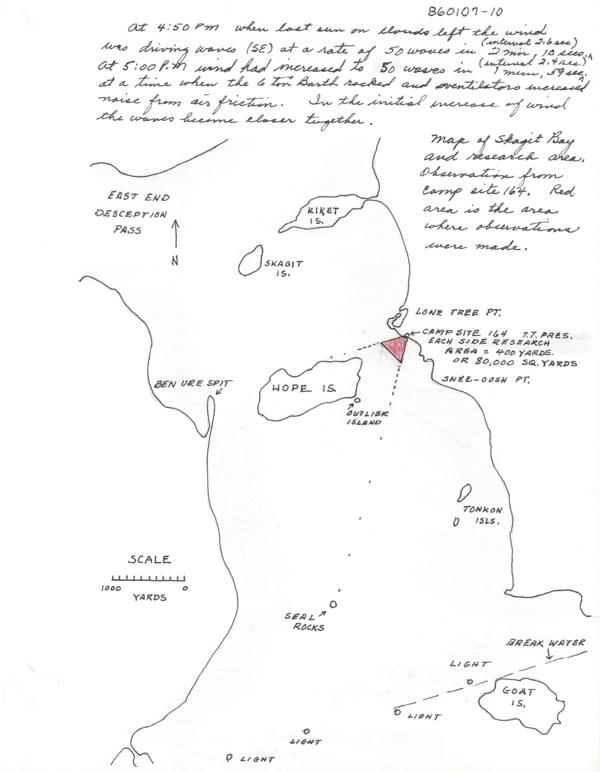 860107-10
At 4:50 PM when last sun on clouds left the wind
was driving waves (SE) at a rate of 50 waves in 2 min, 10 secs, (interval 2.6 sec)
At 5:00 P.M. wind had increased to 50 waves in 1 min, 59 sec, (interval 2.4 sec)
at a time when the 6 ton Barth rocked and ventilators increased
noise from air friction. In the initial increase of wind
the waves become closer together.
Map of Skagit Bay
and research area.
Observation from
camp site 164. Red
area is the area
where observations
were made.
EAST END
DESCEPTION
PASS
N
KIKET
IS.
SKAGIT
IS.
LONE TREE PT.
CAMP SITE 164 T.T. PRES.
EACH SIDE RESEARCH
AREA = 400 YARDS.
OR 80,000 SQ. YARDS
SNEE-OOSH PT.
BEN URE SPIT
HOPE IS.
OUTLIER
ISLAND
TONKON
ISLS.
SCALE
1000 0
YARDS
SEAL
ROCKS
BREAK WATER
LIGHT
GOAT
IS.
LIGHT
LIGHT
LIGHT